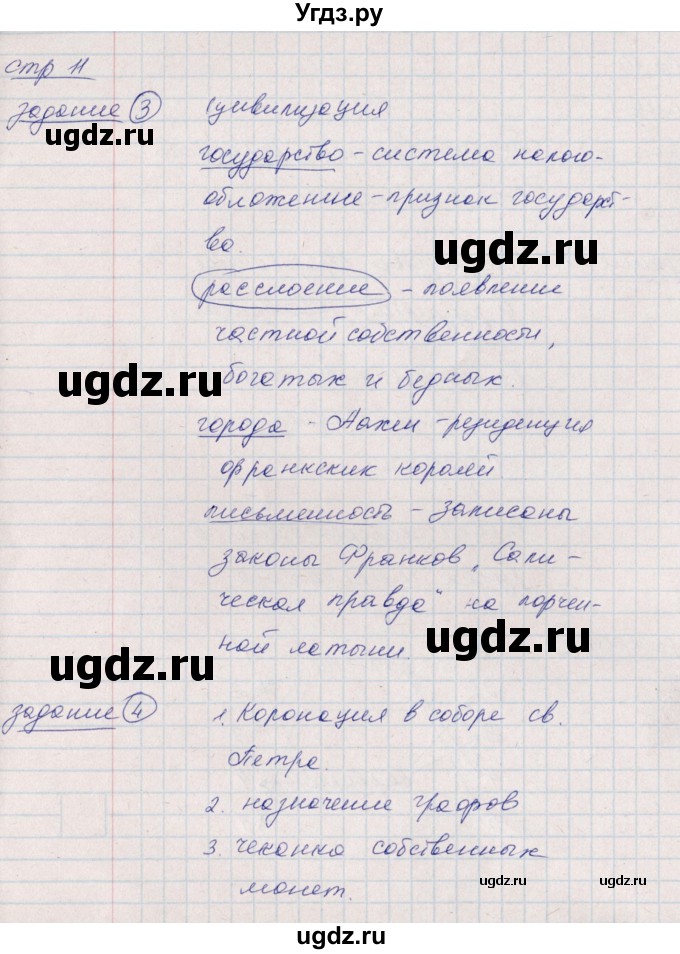 Угдз.ру
стр 11
задание 3 Цивилизация
ugdz.ru
государство - система налого-
обложение - признак государст-
ва.
ugdz.ru
расслоение - появление
частной собственности,
ugdz.ru
богатых и бедных.
города - Аахен - резиденция
франкских королей
письменность - записаны
законы Франков „Сали-
ческая правда“ на порчен-
ной латыни.
ugdz.ru
ugdz.ru
задание 4 1. Коронация в соборе св.
Петра.
2. назначение графов
3. чеканка собственных
монет.
ugdz.ru
ugdz.ru
ugdz.ru